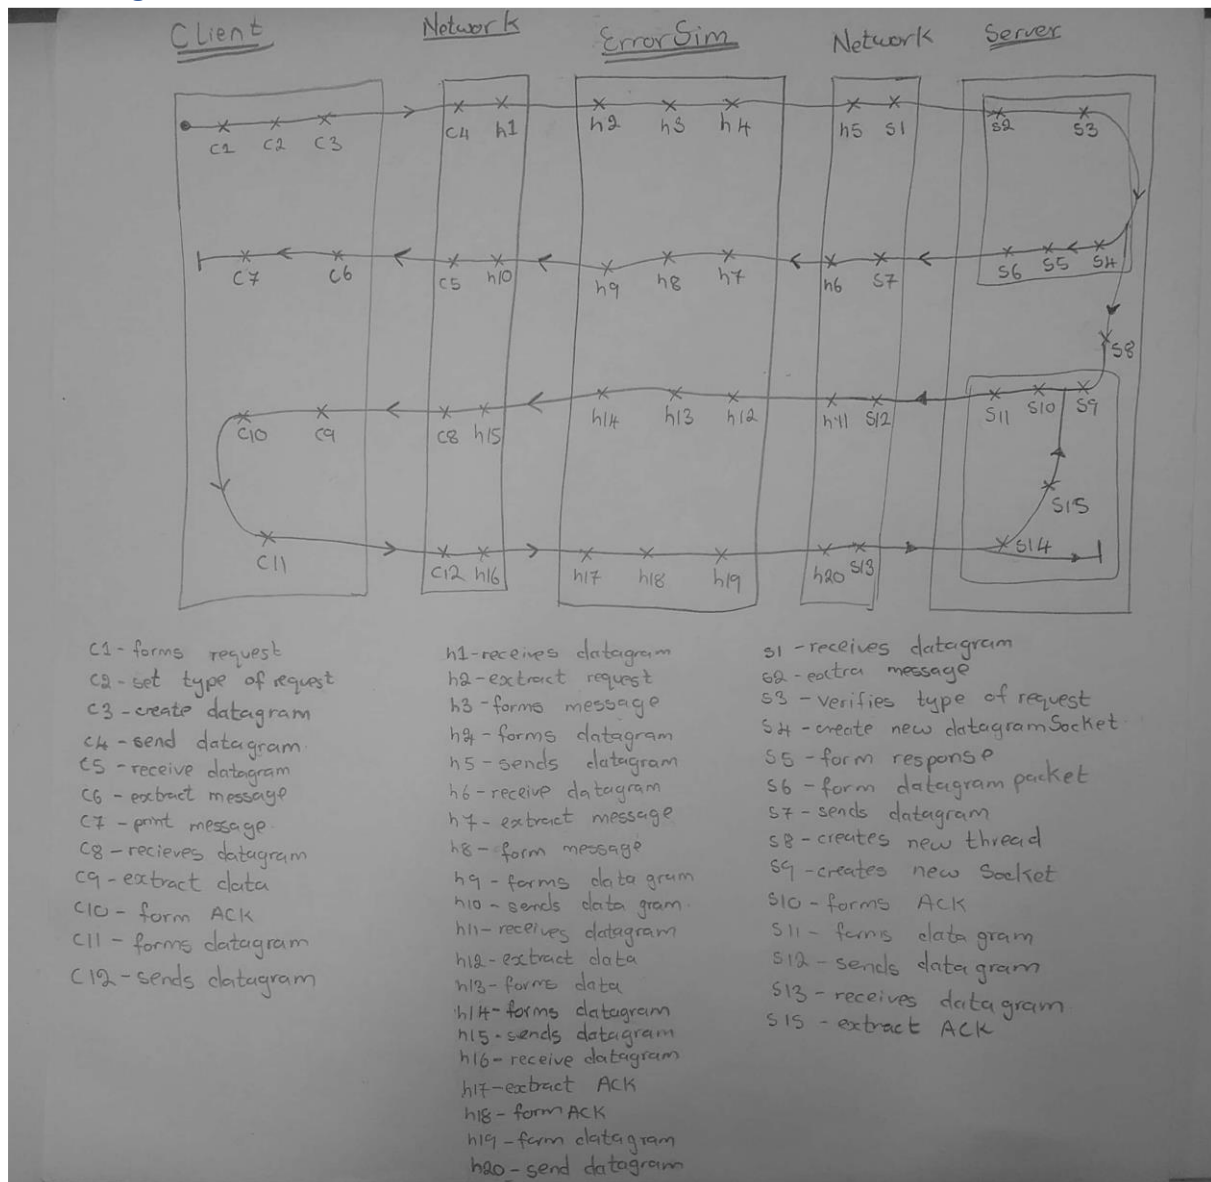 Client Network ErrorSim Network Server
c1 c2 c3 c4 h1 h2 h3 h4 h5 s1 s2 s3
c7 c6 c5 h10 h9 h8 h7 h6 s7 s6 s5 s4
s8
c10 c9 c8 h15 h14 h13 h12 h11 s12 s11 s10 s9
s15
c11 c12 h16 h17 h18 h19 h20 s13 s14
c1 - forms request
c2 - set type of request
c3 - create datagram
c4 - send datagram
c5 - receive datagram
c6 - extract message
c7 - print message
c8 - recieves datagram
c9 - extract data
c10 - form ACK
c11 - forms datagram
c12 - sends datagram
h1 - receives datagram
h2 - extract request
h3 - forms message
h4 - forms datagram
h5 - sends datagram
h6 - receive datagram
h7 - extract message
h8 - form message
h9 - forms data gram
h10 - sends data gram
h11 - receives datagram
h12 - extract data
h13 - forms data
h14 - forms datagram
h15 - sends datagram
h16 - receive datagram
h17 - extract ACK
h18 - form ACK
h19 - form datagram
h20 - send datagram
s1 - receives datagram
s2 - extra message
s3 - verifies type of request
s4 - create new datagramSocket
s5 - form response
s6 - form datagram packet
s7 - sends datagram
s8 - creates new thread
s9 - creates new Socket
s10 - forms ACK
s11 - forms data gram
s12 - sends data gram
s13 - receives data gram
s15 - extract ACK